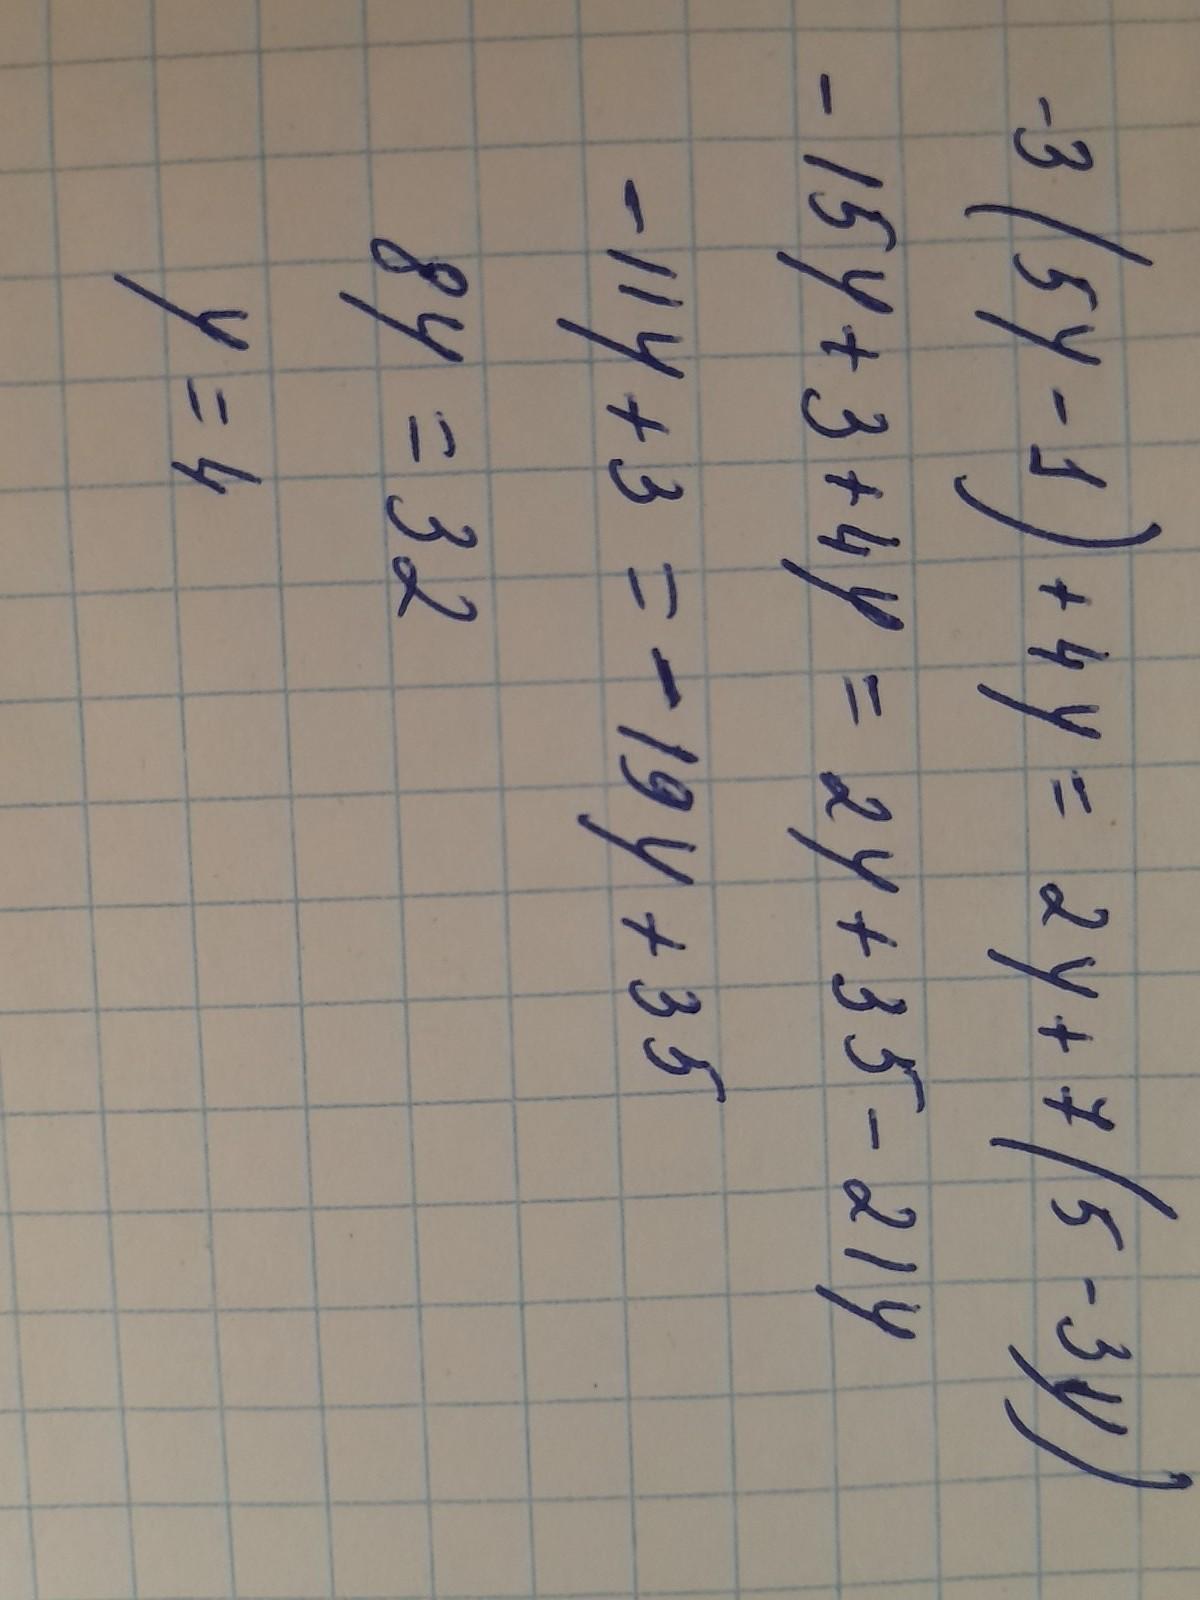 -3(5y-1)+4y=2y+7(5-3y)
-15y+3+4y=2y+35-21y
-11y+3=-19y+35
8y=32
y=4